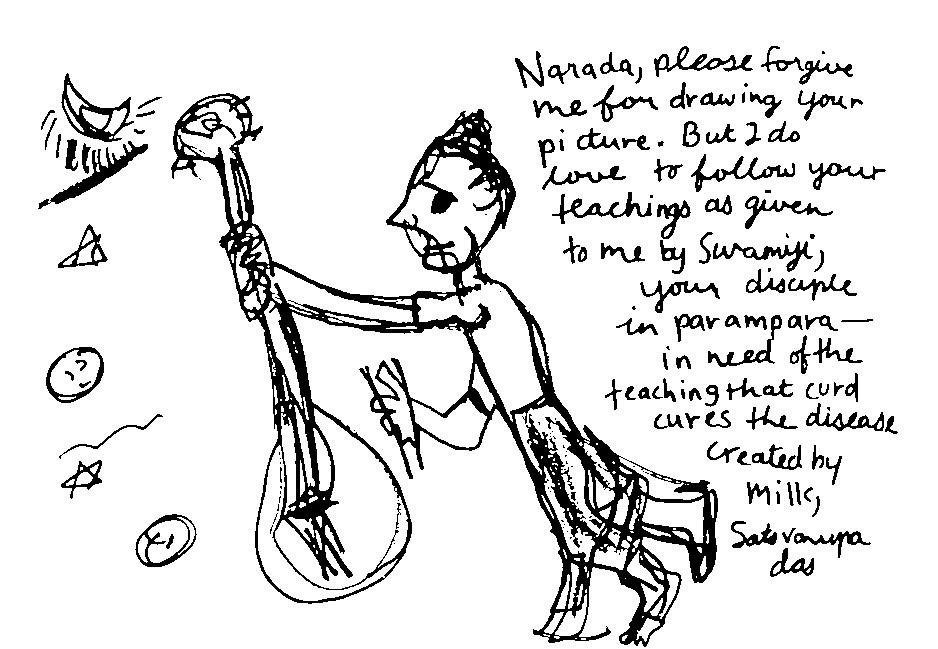 Narada, please forgive
me for drawing your
picture. But I do
love to follow your
teachings as given
to me by Swamiji,
your disciple
in parampara—
in need of the
teaching that curd
cures the disease
created by
milk,
Satsvarupa
das